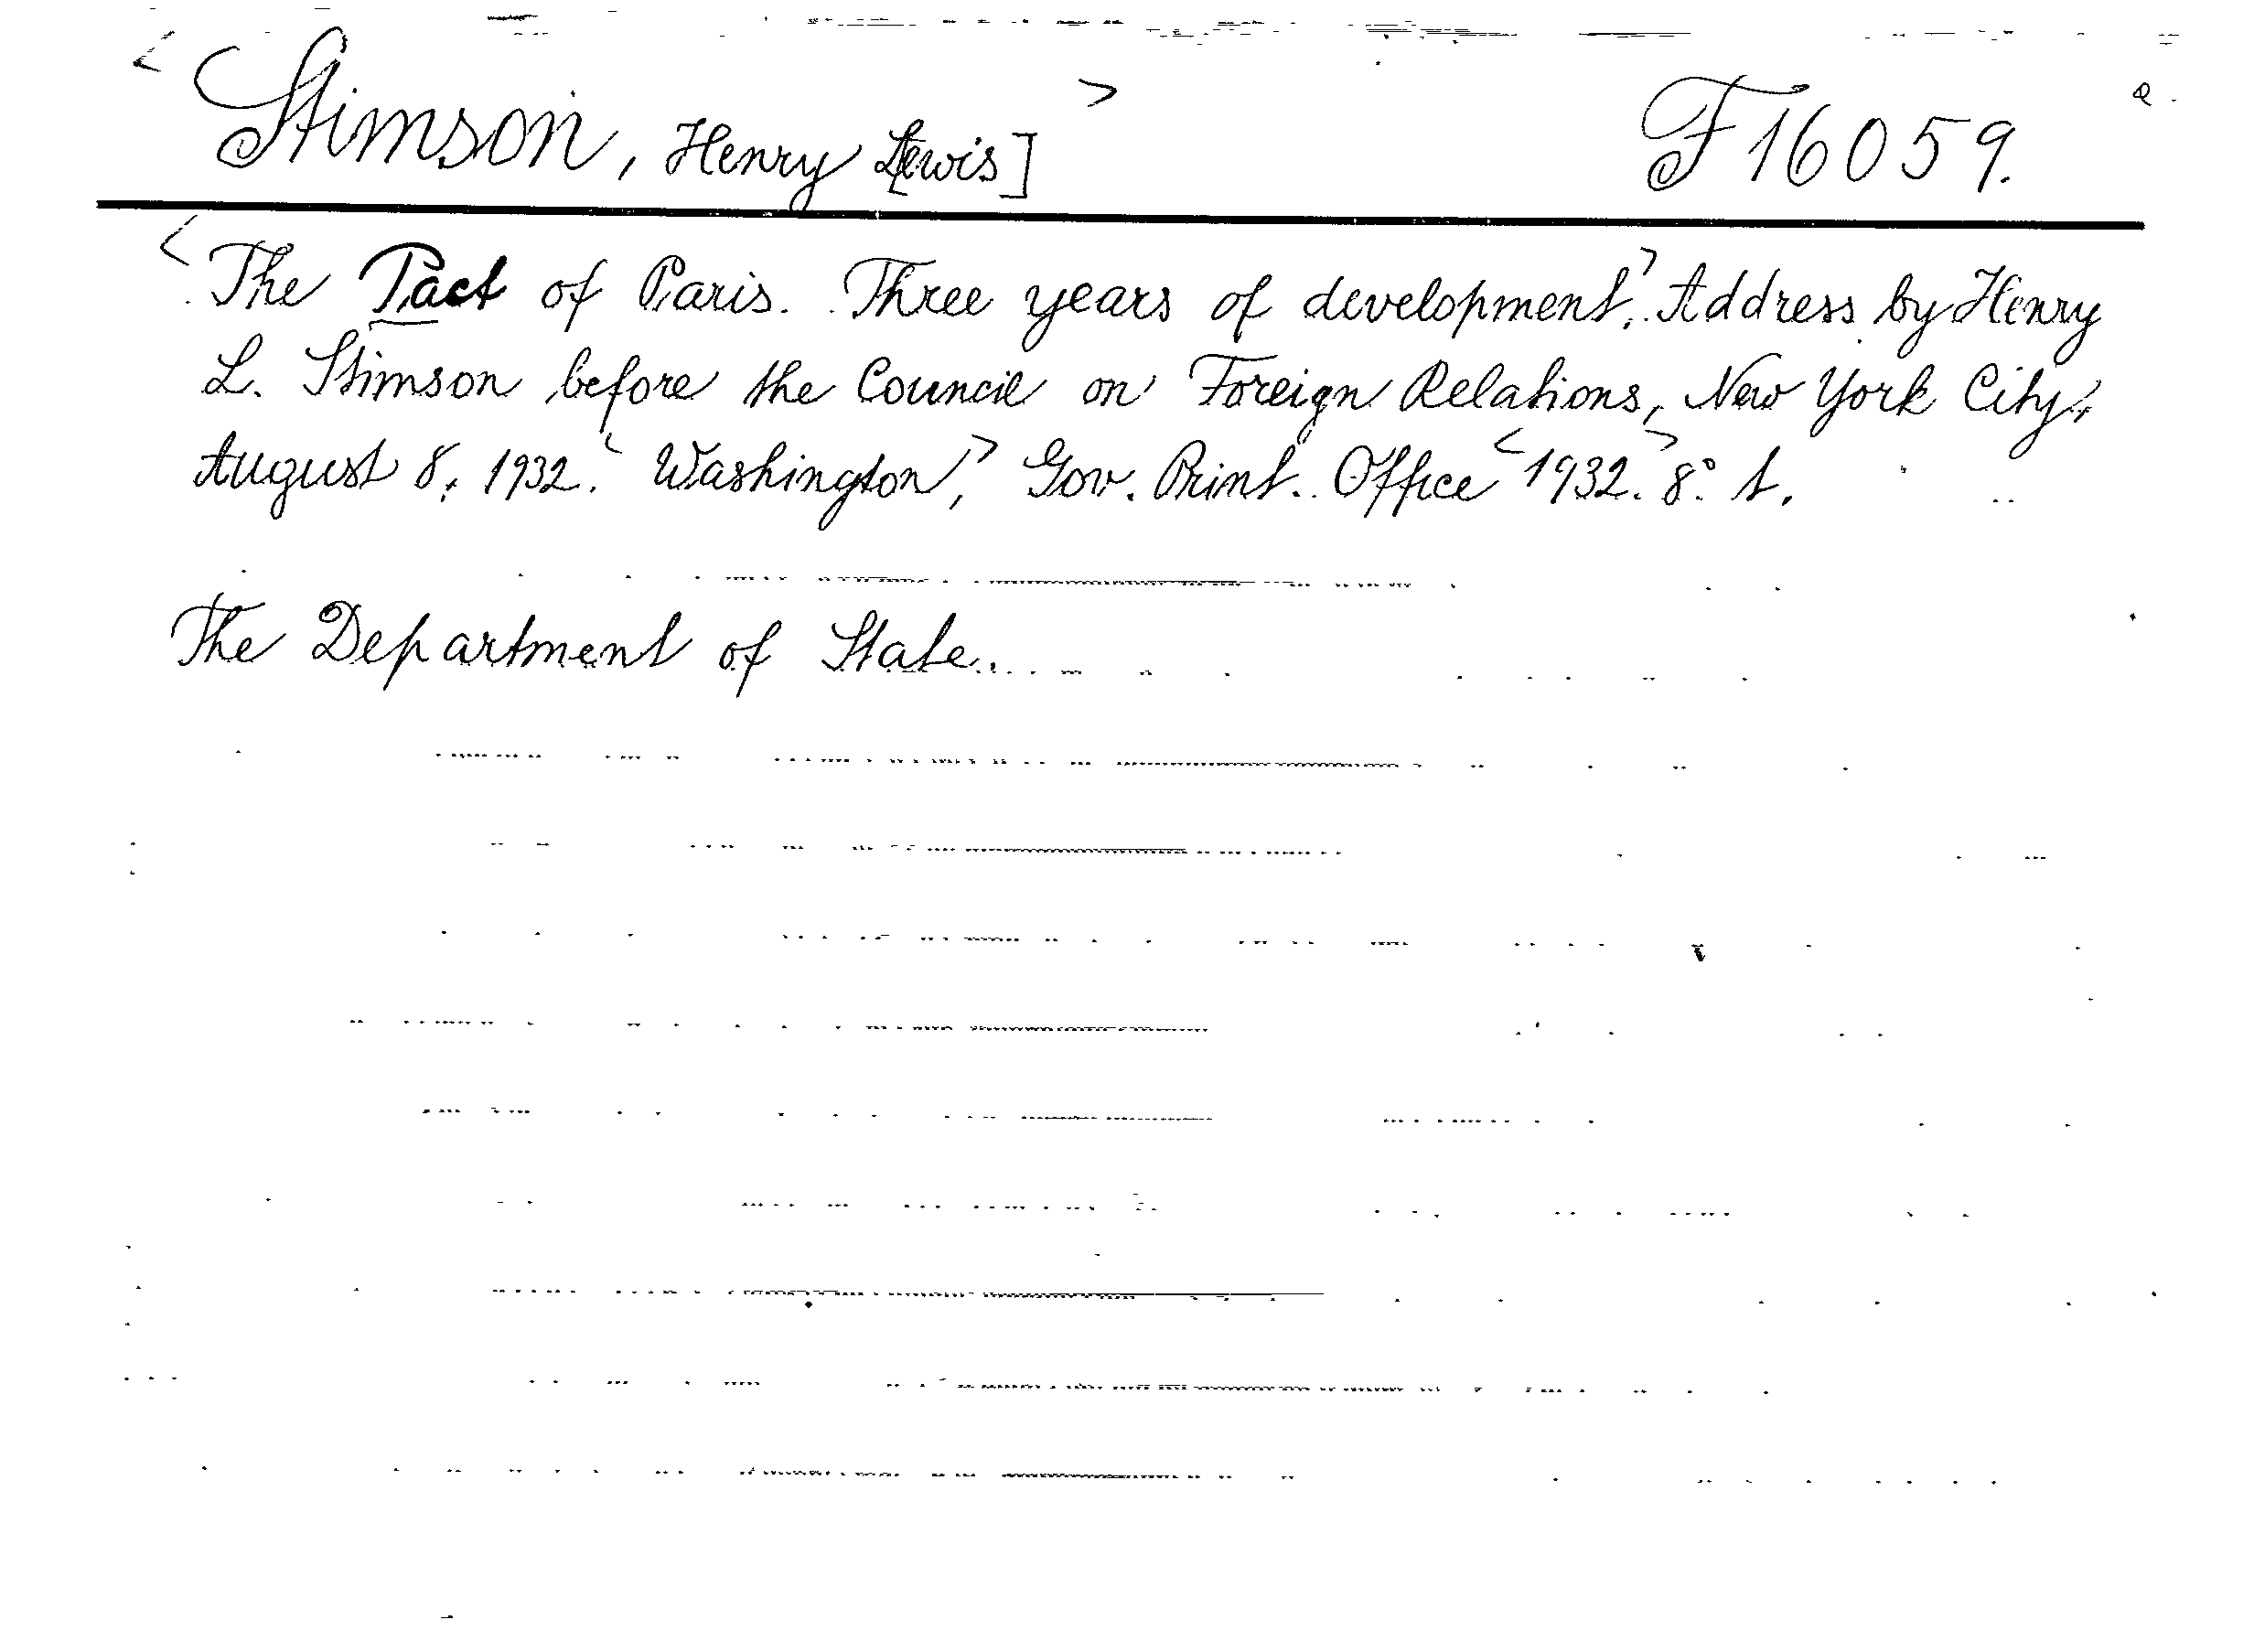 <Stimson, Henry L[ewis]> F16059.
<The Pact of Paris. Three years of development.> Address by Henry
L. Stimson before the Council on Foreign Relations, New York City,
August 8, 1932. <Washington,> Gov. Print. Office <1932.> 8° t.
The Department of State.